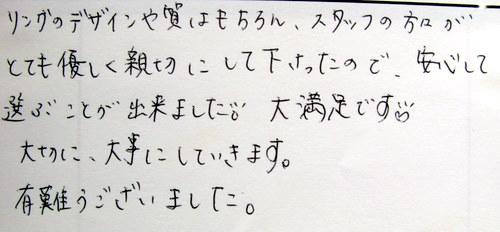 リングのデザインや質はもちろん、スタッフの方々が
とても優しく親切にして下さったので、安心して
選ぶことが出来ました 大満足です
大切に、大事にしていきます。
有難うございました。